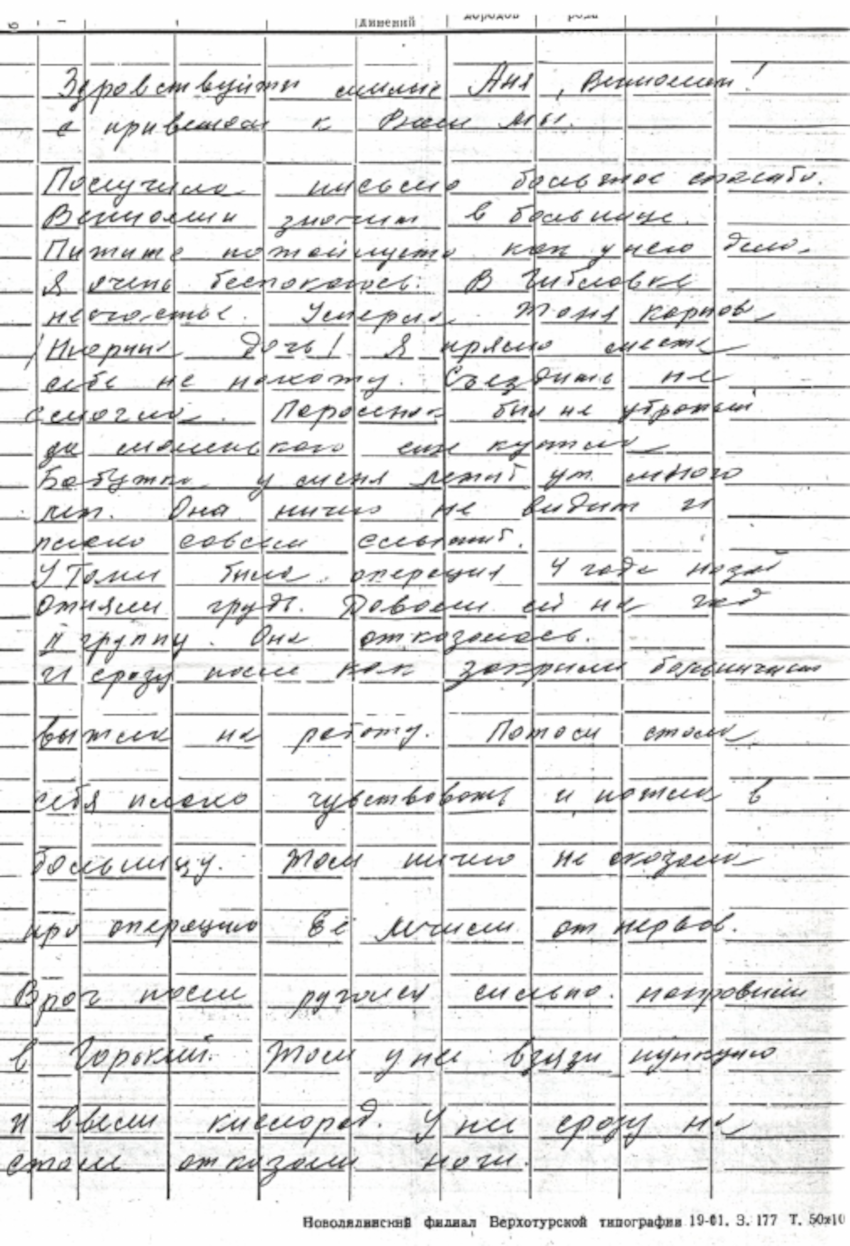 динений
Здравствуйти милые Аня, Вениомин!
с приветом к Вам мы.
Получила письмо большое спасибо.
Вениомин значит в больнице.
Пишите пожайлуста как у него дела.
Я очень беспокоюсь. В Гибловке
несчастье. Умерла Тоня Карпова
Дочь! Я прямо места
себе не нахожу. Съездить не
смогла. Поросенок был не убратый
да маленького еще купила
Бабушка у меня лежит уж много
лет. Она ничего не видит и
плохо совсем слышит.
У Томи была операция 4 года назад
отняли грудь. Довали ей на год
II группу. Она отказалась.
И сразу после как закрыли больничный
вышла на работу. Потом стала
себя плохо чувствовать и пошла в
больницу. Там ничего не сказала
про операцию Её лечили от нервов.
Врач после ругался сильно. направили
в Горький. Там у неё взяли пункцию
и ввели кислород. У ней сразу на
столе отказали ноги.
Новолялинский филиал Верхотурской типографии 19-01. З. 177 Т. 50×10